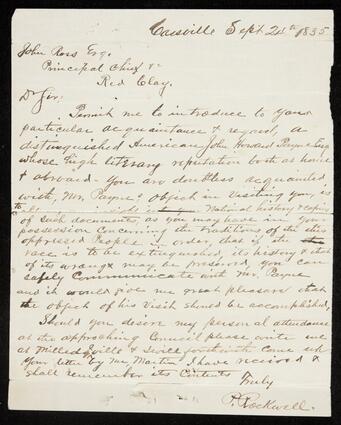 Cassville Sept 24th 1835
John Ross Esq.
Principal Chief &c
Red Clay.
Dr Sir,
Permit me to introduce to your
particular acquaintance & regard, a
distinguished American John Howard Payne Esq
whose high literary reputation both at home
& abroad - you are doubtless acquainted
with, Mr. Payne's object in visiting you, is
to National history & copies
of such documents, as you may have in your
possession concerning the traditions of this
oppressed People in order, that if the
race is to be extinguished, its history & that
of its wrongs may be preserved, you can
safely communicate with Mr Payne
and it would give me great pleasure that
the object of his visit should be accomplished,
Should you desire my personal attendance
at the approaching Council please write me
at Milledgville & I will forthwith come up
Your letter by Mr Martin I have received &
shall remember its contents
Truly
P. Rockwell.